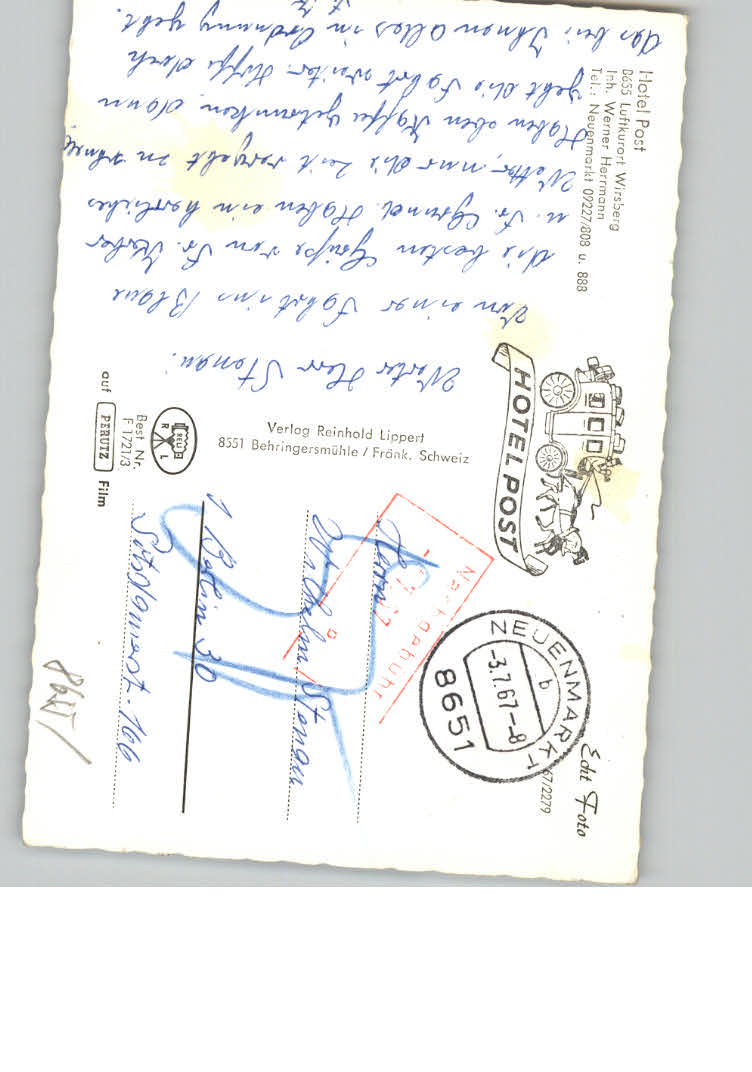 Hotel Post
8655 Luftkurort Wirsberg
Inh. Werner Herrmann
Tel.: Neuenmarkt 09227/808 u. 888
HOTEL POST
Echt Foto
67/2279
NEUENMARKT
b
-3.7.67--8
8651
Nachgebühr
Werter Herr Stenau!
Von einer Fahrt ins Blaue
die besten Grüße von Fr.
u. Fr. Haben ein herrliches
Wetter, nur die Zeit vergeht zu schnell
Haben eben Kaffee getrunken, dann
geht die Fahrt weiter. Hoffe doch
das bei Ihnen alles in Ordnung geht.
Verlag Reinhold Lippert
8551 Behringersmühle / Fränk. Schweiz
RELI
R A L
Best. Nr.
F 1721/3
auf PERUTZ Film
Herrn
Wilhelm Stenau
1 Berlin 30
Potsdamerst. 166